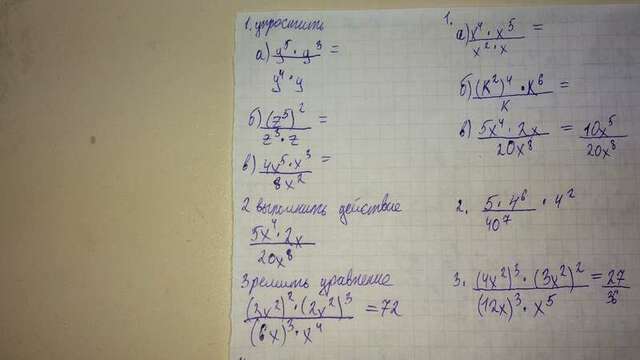 1. упростить
а) y⁵ · y³ / y⁴ · y =
б) (z⁵)² / z³ · z =
в) 4x⁵ · x³ / 8x² =
2 выполнить действие
5x⁴ · 2x / 20x⁸
3 решить уравнение
(3x²)² · (2x²)³ / (6x)³ · x⁴ = 72
1.
а) x⁴ · x⁵ / x² · x =
б) (k²)⁴ · k⁶ / k =
в) 5x⁴ · 2x / 20x⁸ = 10x⁵ / 20x⁸
2. 5 · 4⁶ / 40⁷ · 4²
3. (4x²)³ · (3x²)² / (12x)³ · x⁵ = 27